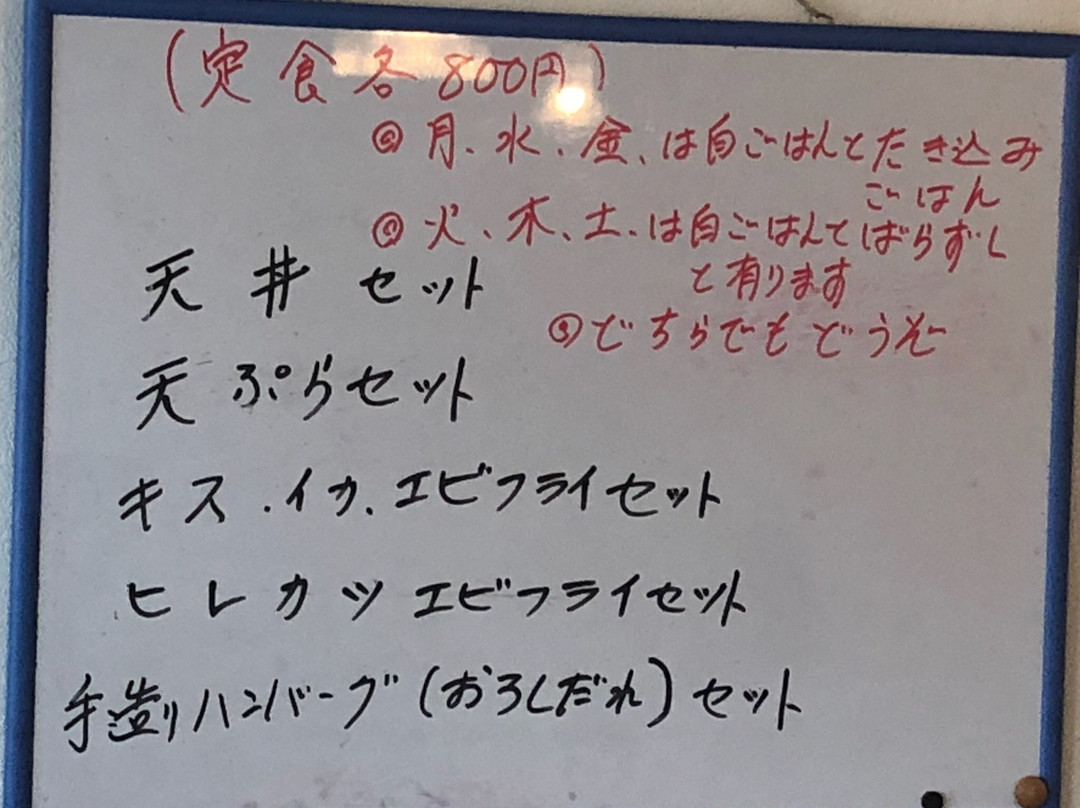 (定食各800円)
◎月、水、金、は白ごはんとたき込み
ごはん
◎火、木、土、は白ごはんとばらずし
と有ります
◎どちらでもどうぞ
天丼セット
天ぷらセット
キス.イカ.エビフライセット
ヒレカツエビフライセット
手造りハンバーグ(おろしだれ)セット